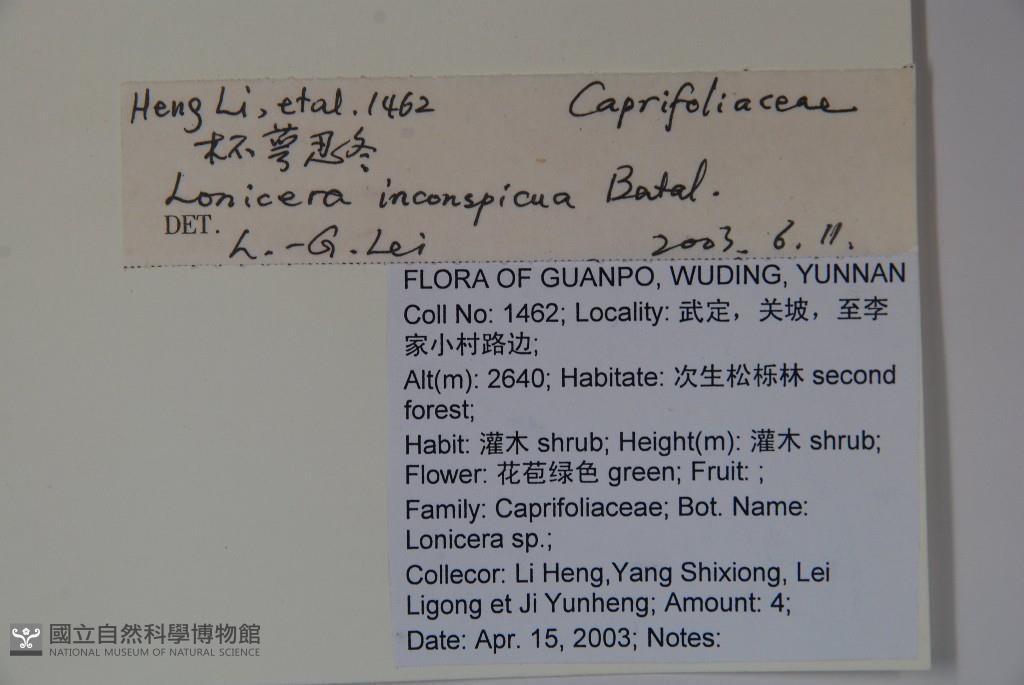 Heng Li, et al. 1462 Caprifoliaceae
杯萼忍冬
Lonicera inconspicua Batal.
DET. L.-G. Lei 2003. 6. 11.
FLORA OF GUANPO, WUDING, YUNNAN
Coll No: 1462; Locality: 武定，关坡，至李
家小村路边;
Alt(m): 2640; Habitate: 次生松栎林 second
forest;
Habit: 灌木 shrub; Height(m): 灌木 shrub;
Flower: 花苞绿色 green; Fruit: ;
Family: Caprifoliaceae; Bot. Name:
Lonicera sp.;
Collecor: Li Heng,Yang Shixiong, Lei
Ligong et Ji Yunheng; Amount: 4;
Date: Apr. 15, 2003; Notes:
國立自然科學博物館
NATIONAL MUSEUM OF NATURAL SCIENCE